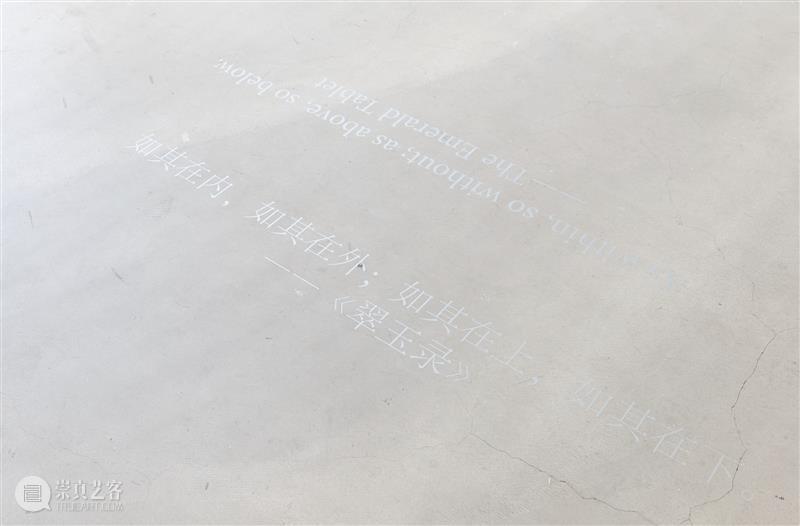 As within, so without; as above, so below.
—— The Emerald Tablet
如其在内，如其在外；如其在上，如其在下。
——《翠玉录》
崇真艺客
TRUEART.COM